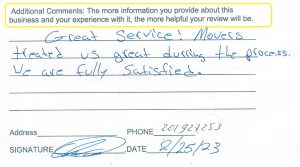 Additional Comments: The more information you provide about this
business and your experience with it, the more helpful your review will be.
Great Service! Movers
treated us great durring the process.
We are fully Satisfied.
Address PHONE 201927253
SIGNATURE DATE 2/25/23